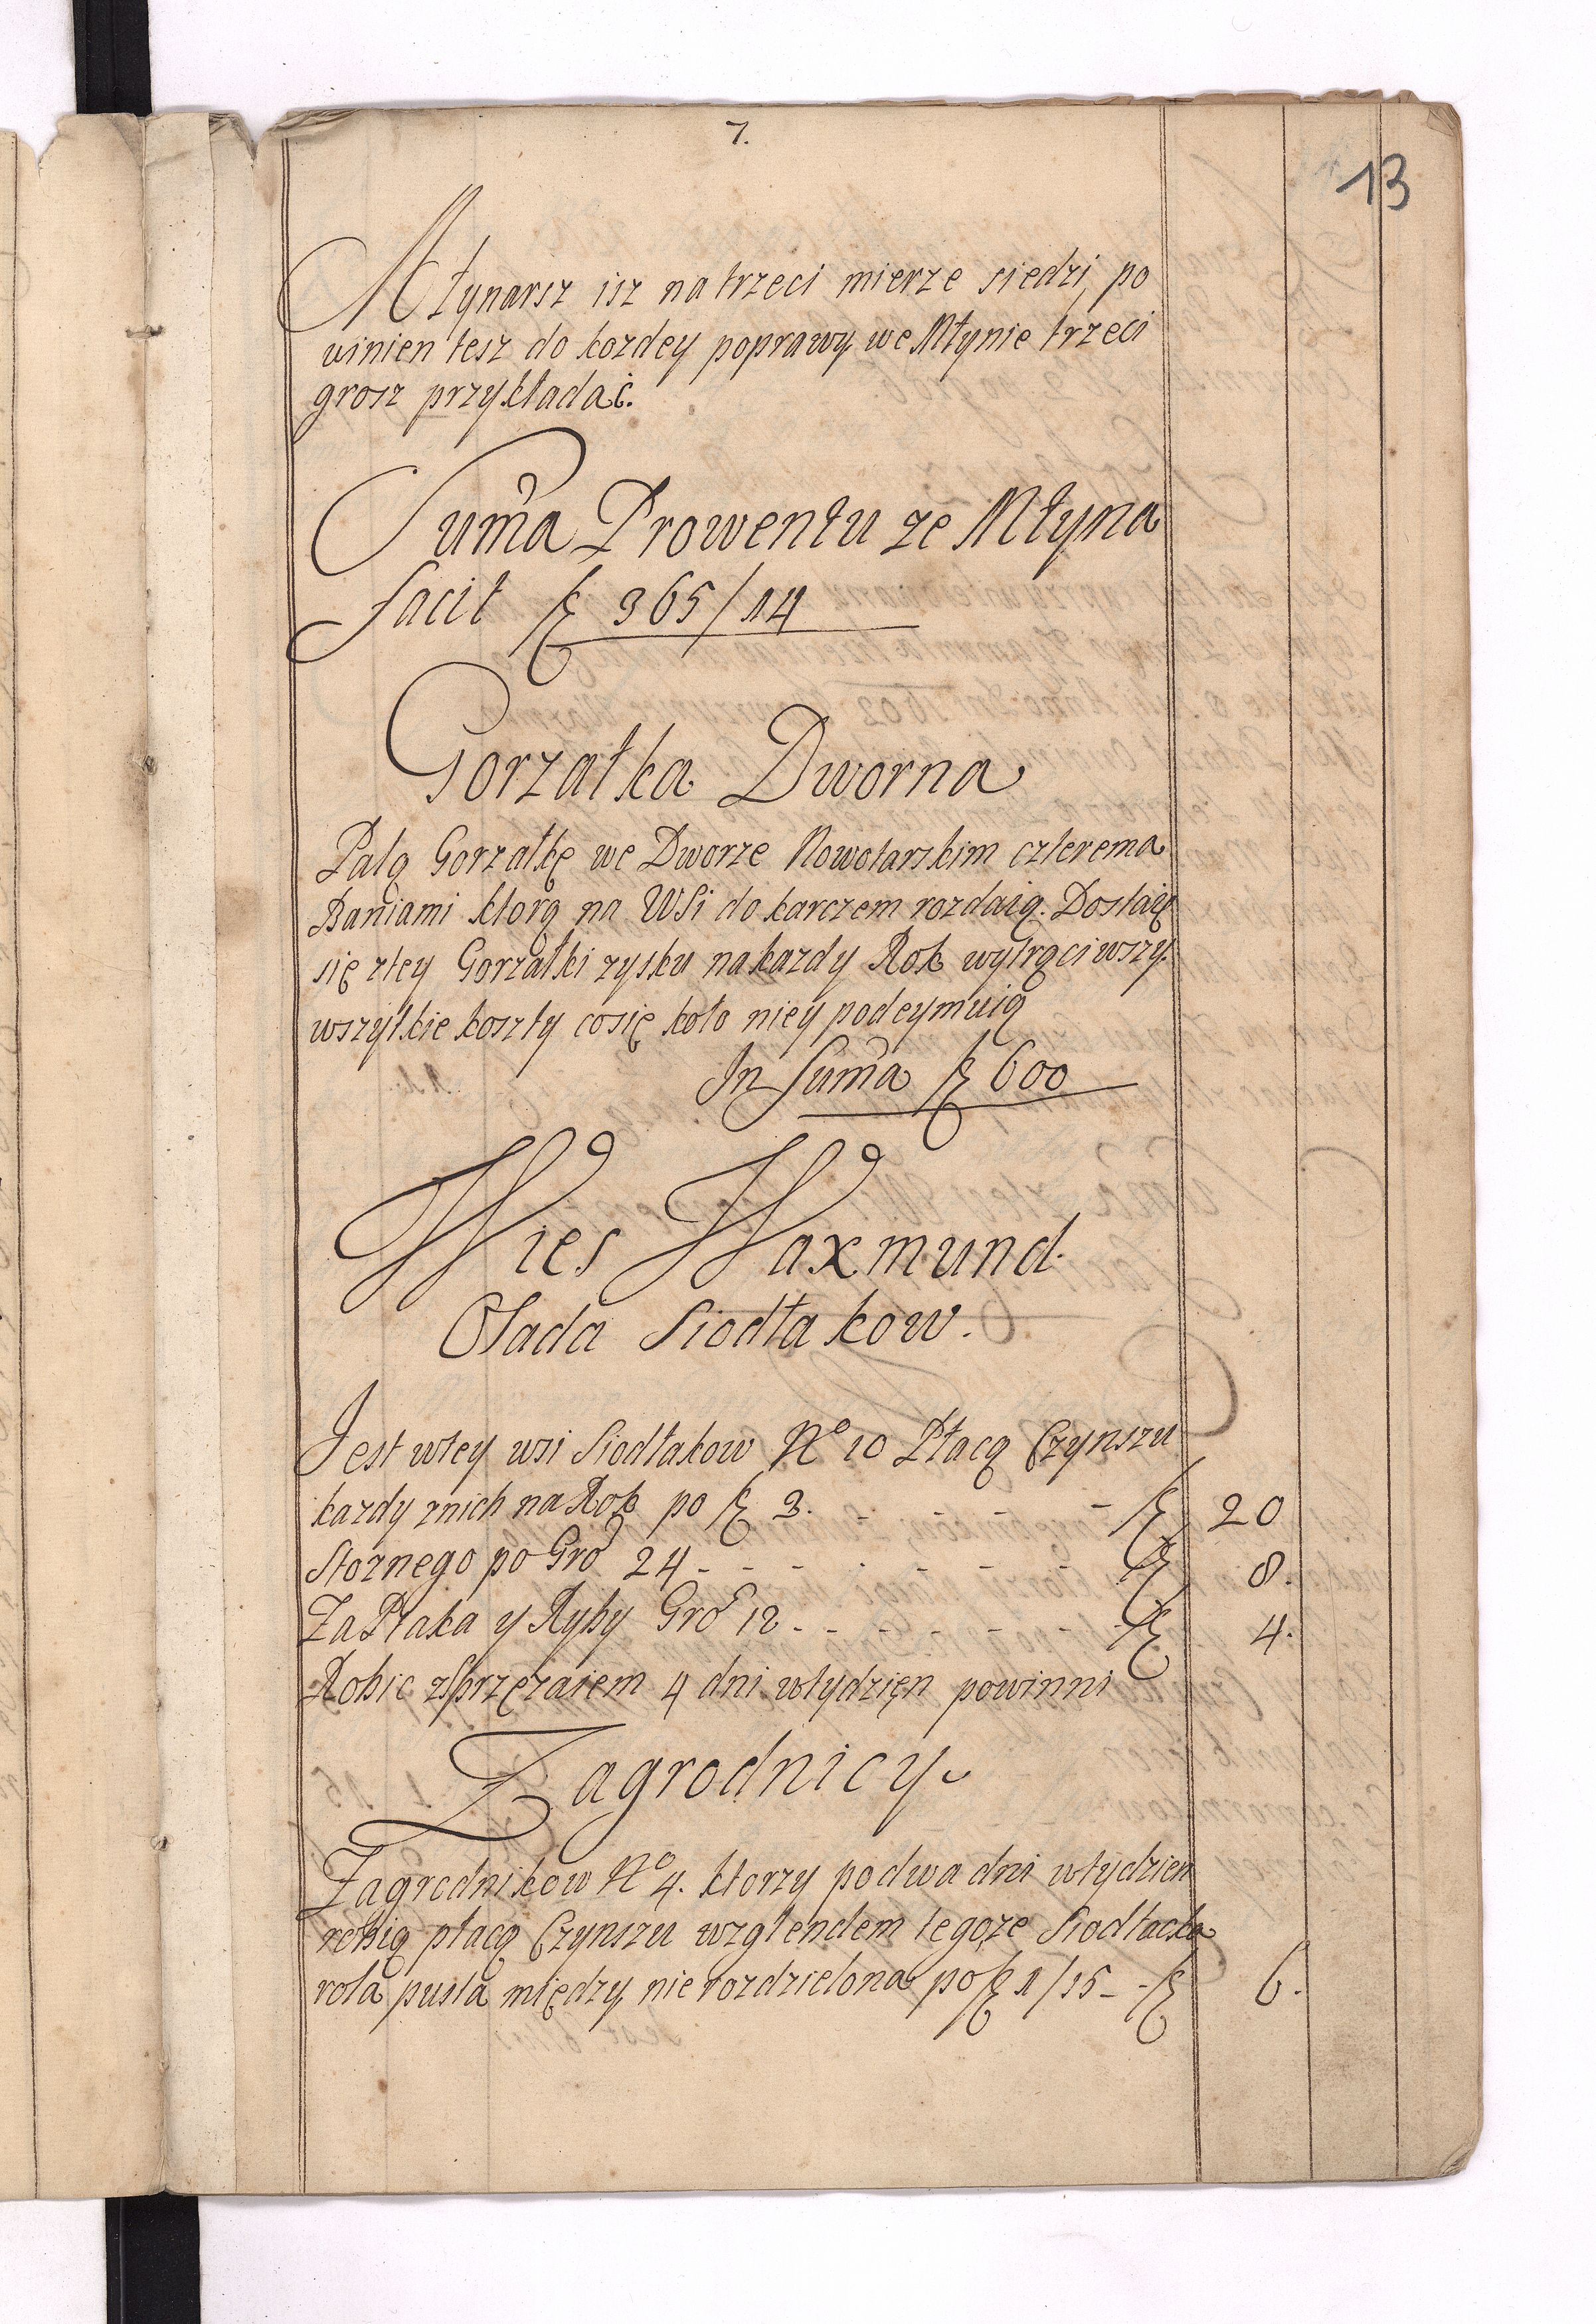 7.
13
Młynarsz isz na trzeci mierze siedzi, po
winien tesz do kozdey poprawy we Młynie trzeci
grosz przykładać.
Sum̃a Prowentu ze Młyna
facit ƒ 365/14
Gorzałka Dworna
Palą Gorzałkę we Dworze Nowotarskim czterema
Baniami ktorą na WSi do karczem rozdaią. Dostaię
się ztey Gorzałki zysku na kazdy Rok wytrąciwszy
wszytkie koszty cosię koło niey podeymuią
In Sum̃a ƒ 600
Wies Waxmund.
Osada Siodłakow.
Jest wtey wsi Siodłakow No 10 Płacą Czynszu
kazdy znich na Rok po ƒ 2. - - - - - ƒ 20
Stoznego po Gro 24 - - - - - - - - ƒ 8.
Za Ptaka y Ryby Gro 12 - - - - - - - ƒ 4.
Robic zsprzęzaiem 4 dni wtydzięn powinni
Zagrodnicy
Zagrodnikow No 4. ktorzy po dwa dni wtydzien
robią płacą Czynszu wzglendem tegoze Siodłacka
rola pusta między nie rozdzielona po ƒ 1/15 - - ƒ 6.